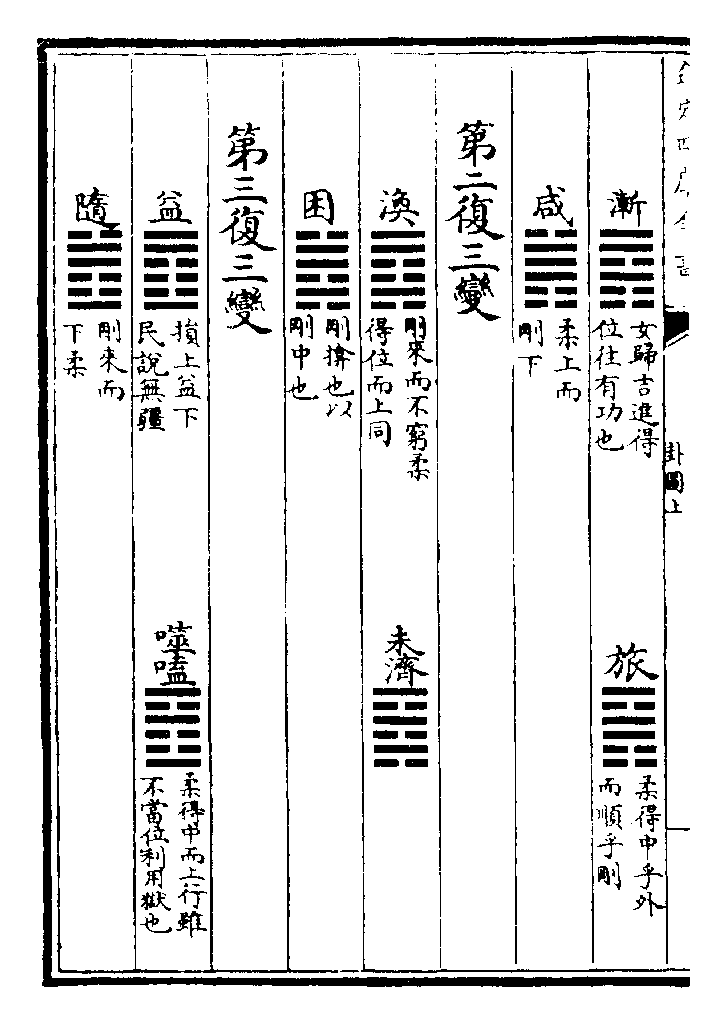 欽定四庫全書
卦圖上
漸
女歸吉進得
位往有功也
旅
柔得中乎外
而順乎剛
咸
柔上而
剛下
第二復三變
渙
剛來而不窮柔
得位而上同
未濟
困
剛揜也以
剛中也
第三復三變
益
損上益下
民說無疆
噬嗑
柔得中而上行雖
不當位利用獄也
隨
剛來而
下柔